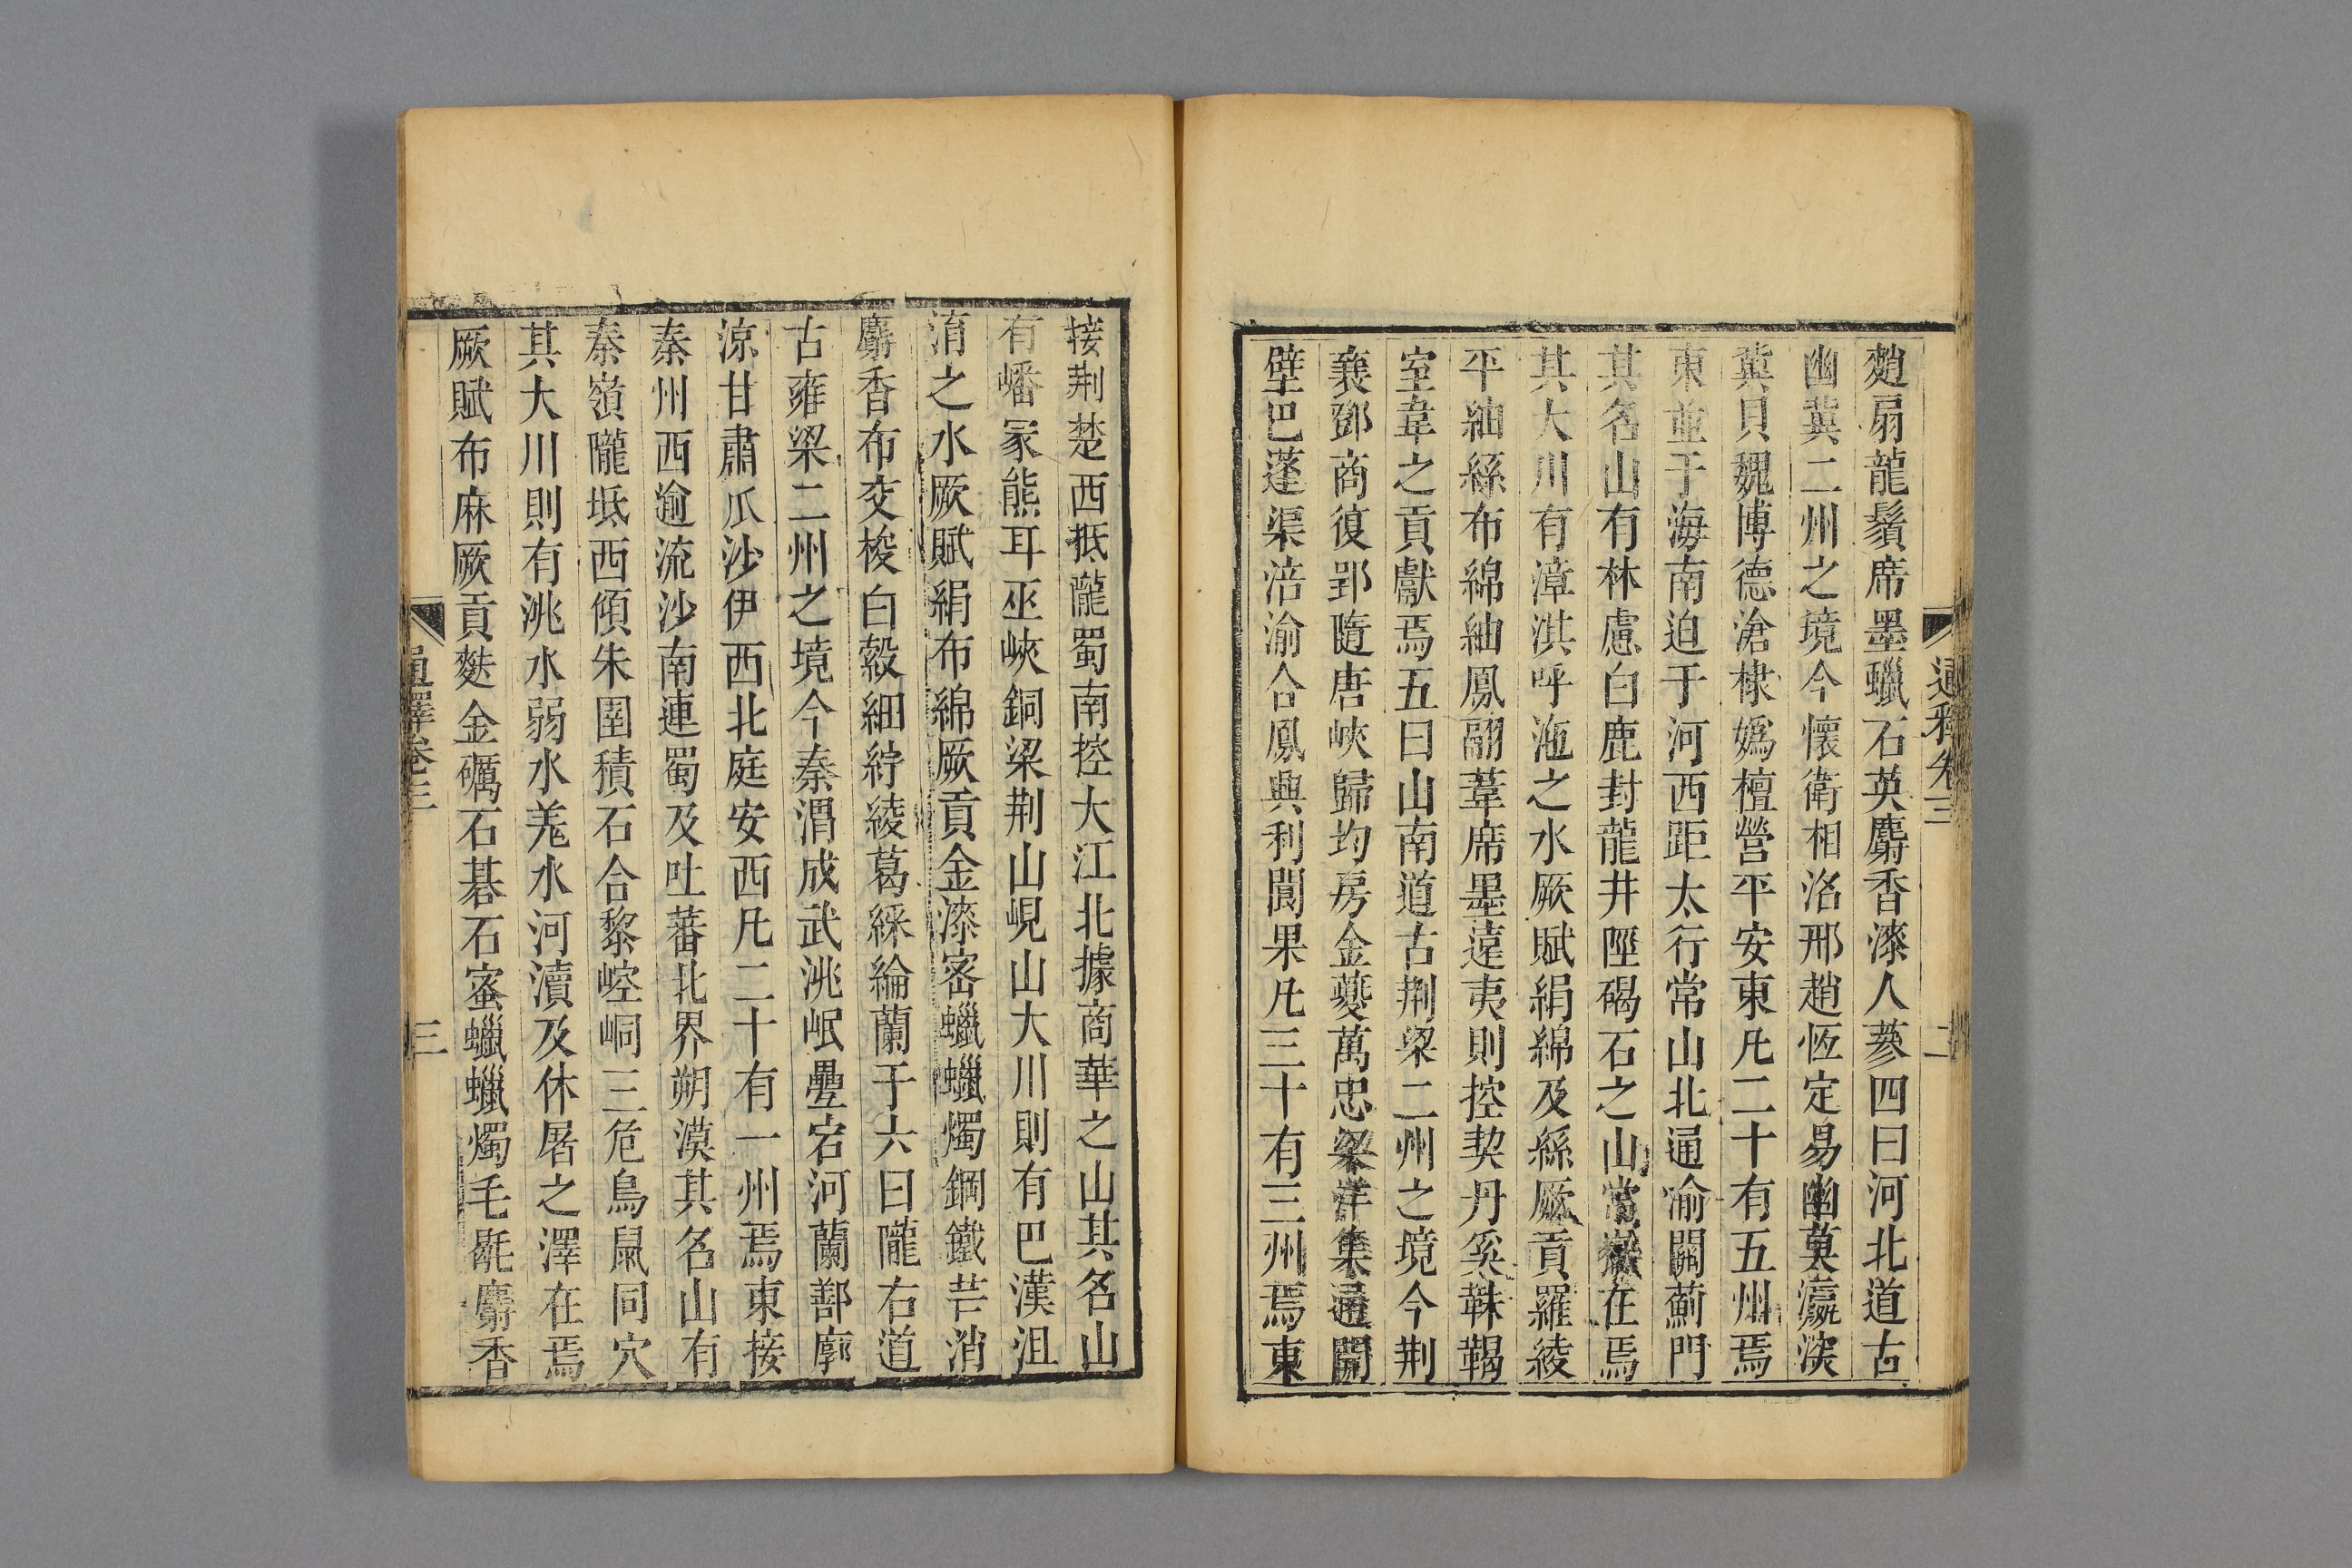 通釋卷三
二
𪎊扇龍鬚席墨蠟石英麝香漆人蔘四曰河北道古
幽冀二州之境今懷衛相洛邢趙恆定易幽莫瀛深
冀貝魏博德滄棣嬀檀營平安東凡二十有五州焉
東並于海南迫于河西距太行常山北通渝關薊門
其名山有林慮白鹿封龍井陘碣石之山常嶽在焉
其大川有漳淇呼沲之水厥賦絹綿及絲厥貢羅綾
平紬絲布綿紬鳳翮葦席墨遠夷則控契丹奚靺鞨
室韋之貢獻焉五曰山南道古荆梁二州之境今荆
襄鄧商復郢隨唐峽歸均房金夔萬忠梁洋集通開
壁巴蓬渠涪渝合鳳興利閬果凡三十有三州焉東
接荆楚西抵隴蜀南控大江北據商華之山其名山
有嶓冢熊耳巫峽銅梁荆山峴山大川則有巴漢沮
淯之水厥賦絹布綿厥貢金漆密蠟蠟燭鋼鐵芒消
麝香布交梭白縠細紵綾葛綵綸蘭于六曰隴右道
古雍梁二州之境今秦渭成武洮岷疊宕河蘭鄯廓
涼甘肅瓜沙伊西北庭安西凡二十有一州焉東接
秦州西逾流沙南連蜀及吐蕃北界朔漠其名山有
秦嶺隴坻西傾朱圉積石合黎崆峒三危鳥鼠同穴
其大川則有洮水弱水羌水河瀆及休屠之澤在焉
厥賦布麻厥貢麩金礪石碁石蜜蠟蠟燭毛毼麝香
通釋卷三
三